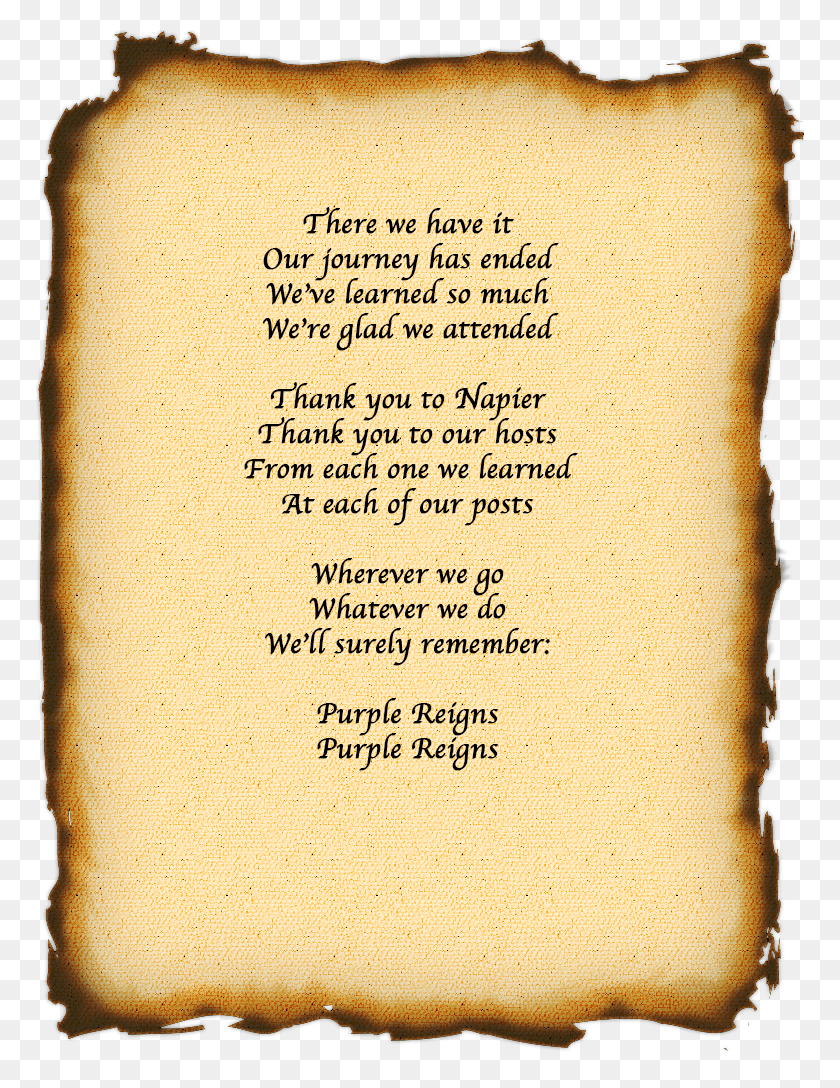 There we have it
Our journey has ended
We've learned so much
We're glad we attended
Thank you to Napier
Thank you to our hosts
From each one we learned
At each of our posts
Wherever we go
Whatever we do
We'll surely remember:
Purple Reigns
Purple Reigns